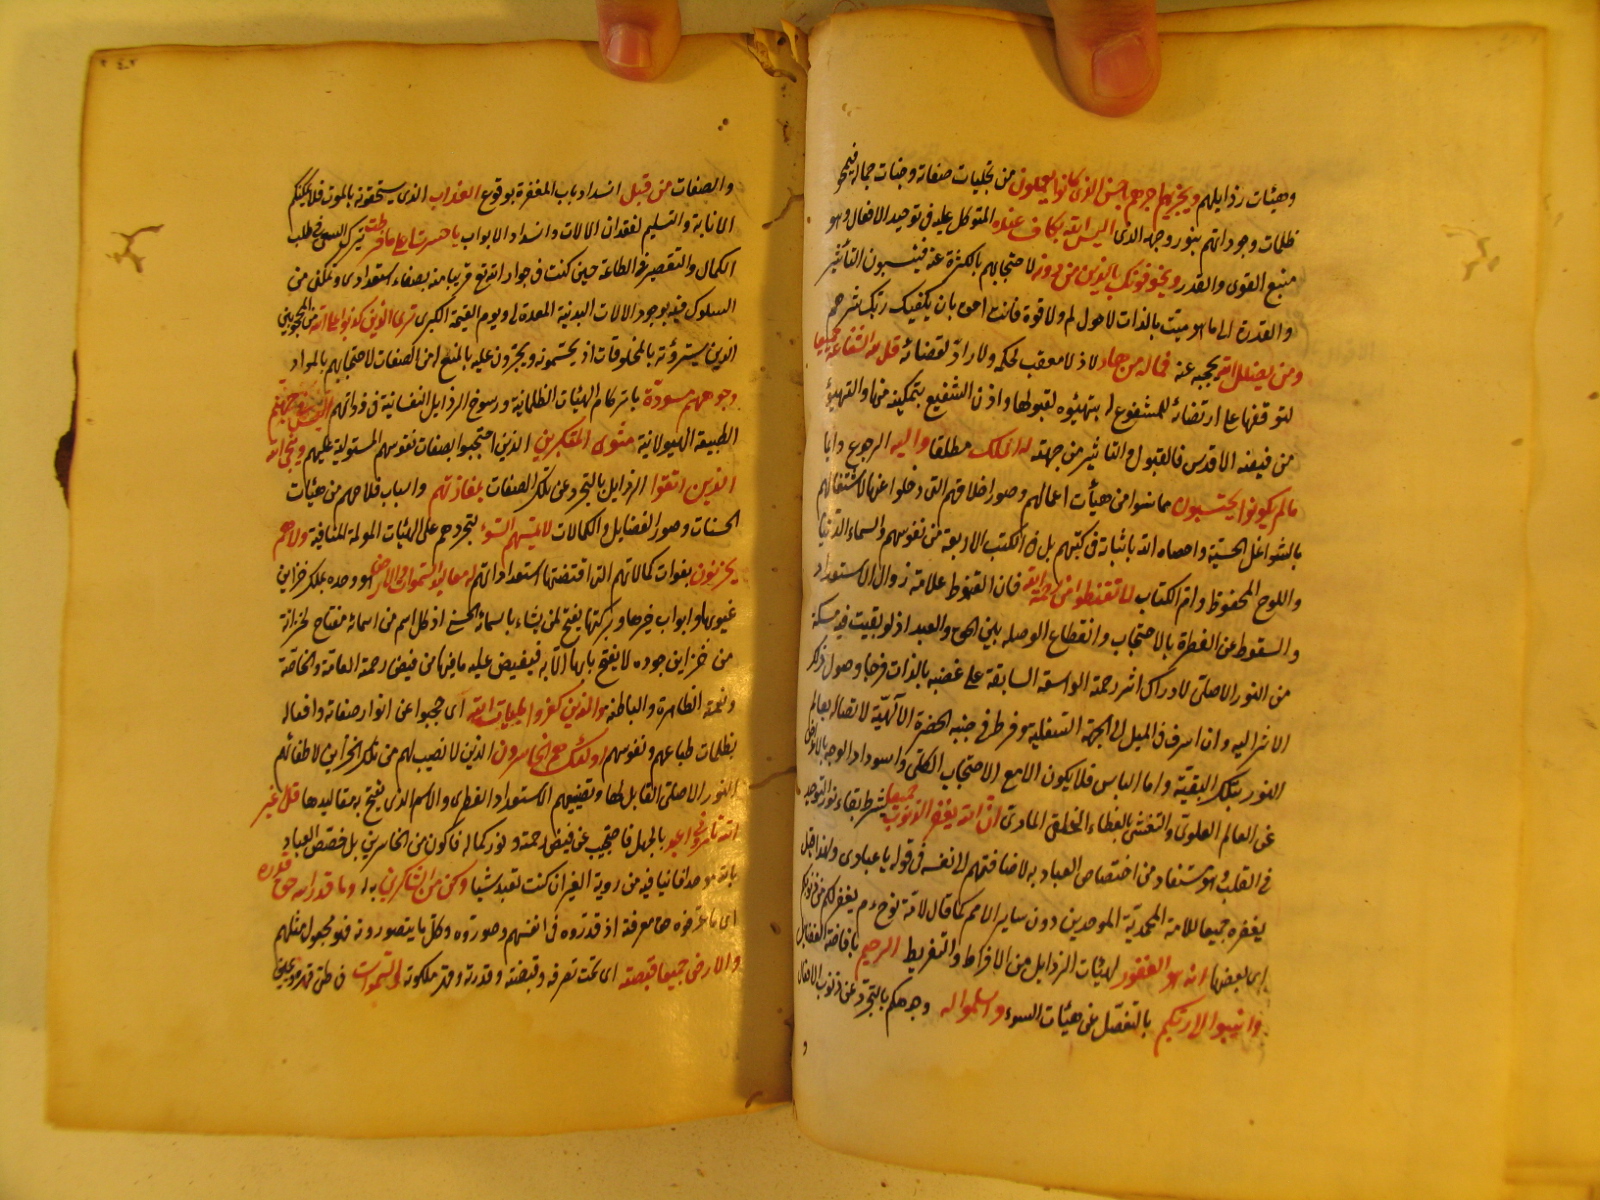 وهيئات رذايلهم ويجزيهم اجرهم باحسن الذى كانوا يعملون من تجليات صفاته وجنات جماله فيمحو
ظلمات وجوداتهم بنور وجهه الذى اليس الله بكاف عبده المتوكل عليه فى توحيد الافعال وهو
منبع القوى والقدر ويخوفونك بالذين من دونه لاحتجابهم بالكثرة عنه فينسبون التأثير
والقدرة الى ما هو ميت بالذات لا حول له ولا قوة فانت احق بان يكفيك ربك شرهم
ومن يضلل الله يحجبه عنه فما له من هاد لا معقب لحكمه ولا راد لقضائه قل لله الشفاعة جميعا
لتوقفها على ارتضائه للمشفوع له بتهيئوه لقبولها واذن الشفيع بتمكينه منها والتهيؤ
من فيضه الاقدس فالقبول والتاثير من جهته له الملك مطلقا واليه الرجوع دايما
ما لم يكونوا يحتسبون مما نسوا من هيأت اعمالهم وصور اخلاقهم التى ذهلوا عنها لاشتغالهم
بالشواغل الحسية واحصاه الله باثباته فى كتبهم بل فى الكتب الاربعة من نفوسهم والسماء الدنيا
واللوح المحفوظ وام الكتاب لا تقنطوا من رحمة الله فان القنوط علامة زوال الاستعداد
والسقوط عن الفطرة بالاحتجاب وانقطاع الوصلة بين الحق والعبد اذ لو بقيت فيه مسكة
من النور الاصلى لادرك اثر رحمته الواسعة السابقة على غضبه بالذات فرجا وصول ذلك
الاثر اليه وان اسرف فى الميل الى الجهة السفلية وفرط فى جنب الحضرة الالهية لاتصاله بعالم
النور بتلك البقية واما الياس فلا يكون الا مع الاحتجاب الكلى واسوداد الوجه بالاعراض
عن العالم العلوى والتغشى بالغطاء الخلقى المادى ان الله يغفر الذنوب جميعا بشرط بقاء نور التوحيد
فى القلب وهو مستفاد من اختصاص العباد به لاضافتهم الى نفسه فى قوله يا عبادى ولهذا قيل
يغفره جميعا للامة المحمدية الموحدين دون ساير الامم كما قال لامة نوح ءم يغفر لكم من ذنوبكم
اى بعضها انه هو الغفور لهيئات الرذايل من الافراط والتفريط الرحيم بافاضة الفضائل
وانيبوا الى ربكم بالتفصل عن هيئات السوء واسلموا له وجوهكم بالتجرد عن ذنوب الافعال
و
والصفات من قبل انسداد باب المغفرة بوقوع العذاب الذى يستحقونه بالموت فلا يمكنكم
الانابة والتسليم لفقدان الالات وانسداد الابواب يا حسرتا على ما فرطت بترك السعى فى طلب
الكمال والتقصير فى الطاعة حين كنت فى جوار الله تع قريبا منه بصفاء استعدادى وتمكنى من
السلوك فيه بوجود الالات البدنية المعدة لى ويوم القيمة الكبرى ترى الذين كذبوا على الله من المحجوبين
الذين يسترؤنه بالمخلوقات اذ يجسمونه ويجوزون عليه بالمنع من الصفات لاحتجابهم بالمواد
وجوههم مسودة بارتكام الهيئات الظلمانية ورسوخ الرذايل النفسانية فى ذواتهم اليس فى جهنم
الطبيعة الهيولانية مثوى المتكبرين الذين احتجبوا بصفات نفوسهم المستولية عليهم وينجى الله
الذين اتقوا الرذايل بالتجرد عن تلك الصفات بمفازتهم واسباب فلاحهم من هيئات
الحسنات وصور الفضايل والكمالات لا يمسهم السوء لتجردهم على الهيئات المولمة المنافية ولا هم
يحزنون بفوات كمالاتهم التى اقتضتها استعداداتهم له مقاليد السموات والارض هو وحده يملك خزاين
غيوبها وابواب خيرها وبركتها يفتح لمن يشاء باسمائه الحسنى اذ كل اسم من اسمائه مفتاح لخزانة
من خزاين جوده لا يفتح بابها الا به فيفيض عليه ما فيها من فيض رحمته العامة والخاصة
ونعمته الظاهرة والباطنة والذين كفروا بايات الله اى حجبوا عن انوار صفاته وافعاله
بظلمات طباعهم ونفوسهم اولئك هم الخاسرون الذين لا نصيب لهم من تلك الخزاين لاطفائهم
النور الاصلى القابل لها وتضييعهم الاستعداد الفطرى والاسم الذى يفتح به مقاليدها قل افغير
الله تامرونى اعبد بالجهل فاحتجب عن فيض رحمته ونور كماله فاكون من الخاسرين بل خصص العبادة
بالله موحدا فانيا فيه من روية الغير ان كنت تعبد شيئا وكن من الشاكرين به له وما قدروا الله حق قدره
اى ما عرفوه حق معرفته اذ قدروه فى انفسهم وصوروه وكل ما يتصورونه فهو مجعول مثلهم
والارض جميعا قبضته اى تحت تصرفه وقبضته وقدرته وقهر ملكوته والسموات فى طى قهره ويمين